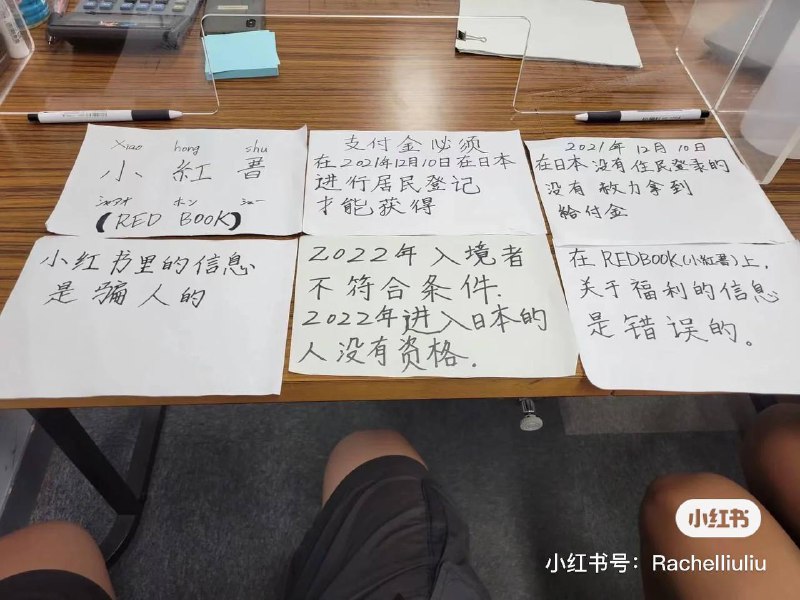 Xiao hong shu
小 紅 普
シャオ ホン シュー
(RED BOOK)
支付金必须
在2021年12月10日在日本
进行居民登记
才能获得
2021年 12月 10日
在日本没有住民登录的
没有 效力拿到
给付金
小红书里的信息
是骗人的
2022年入境者
不符合条件.
2022年进入日本的
人没有资格.
在REDBOOK(小紅薯)上,
关于福利的信息
是错误的。
小红书
小红书号：Rachelliuliu